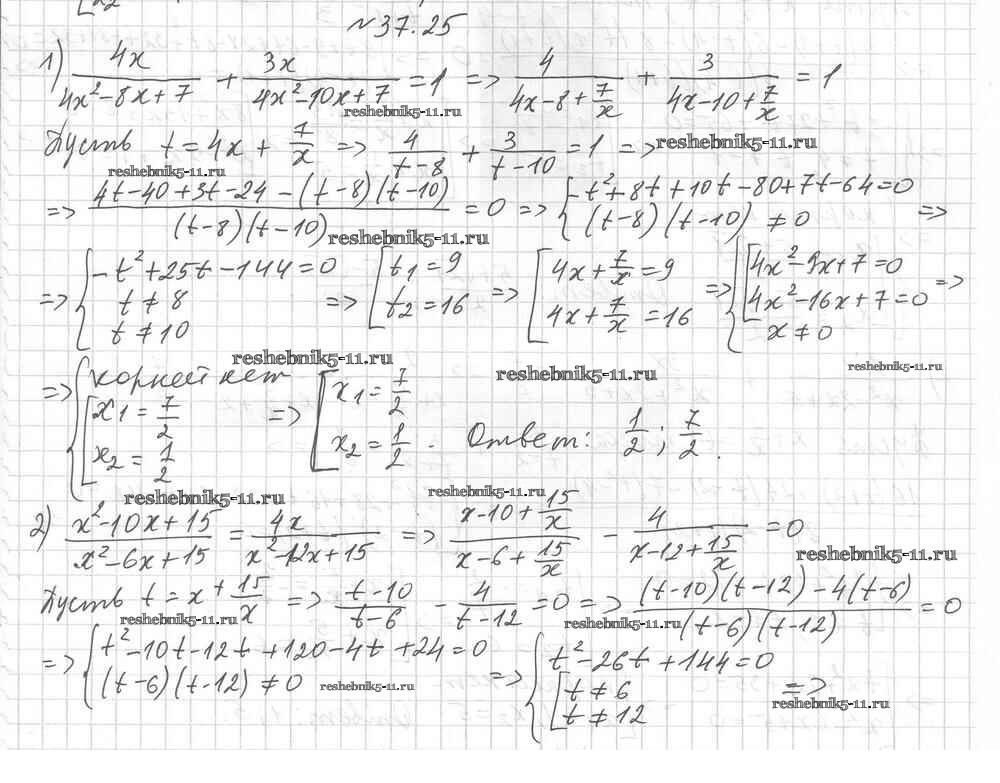 №37.25
1) 4x/(4x²-8x+7) + 3x/(4x²-10x+7) = 1 => 4/(4x-8+7/x) + 3/(4x-10+7/x) = 1
reshebnik5-11.ru
Пусть t = 4x + 7/x => 4/(t-8) + 3/(t-10) = 1 => reshebnik5-11.ru
reshebnik5-11.ru
=> (4t-40+3t-24-(t-8)(t-10))/((t-8)(t-10)) = 0 => { -t²+8t+10t-80+7t-64=0 ; (t-8)(t-10) ≠ 0 =>
reshebnik5-11.ru
=> { -t²+25t-144=0 ; t ≠ 8 ; t ≠ 10 => [ t₁=9 ; t₂=16 => [ 4x+7/x=9 ; 4x+7/x=16 => { [ 4x²-9x+7=0 ; 4x²-16x+7=0 ; x≠0 =>
reshebnik5-11.ru
reshebnik5-11.ru
reshebnik5-11.ru
=> { корней нет ; [ x₁=7/2 ; x₂=1/2 => [ x₁=7/2 ; x₂=1/2 . Ответ: 1/2; 7/2.
reshebnik5-11.ru
reshebnik5-11.ru
2) (x²-10x+15)/(x²-6x+15) = 4x/(x²-12x+15) => (x-10+15/x)/(x-6+15/x) - 4/(x-12+15/x) = 0
reshebnik5-11.ru
Пусть t = x + 15/x => (t-10)/(t-6) - 4/(t-12) = 0 => ((t-10)(t-12)-4(t-6))/((t-6)(t-12)) = 0
reshebnik5-11.ru
reshebnik5-11.ru
=> { t²-10t-12t+120-4t+24=0 ; (t-6)(t-12) ≠ 0 => { t²-26t+144=0 ; [ t≠6 ; t≠12 =>
reshebnik5-11.ru
reshebnik5-11.ru